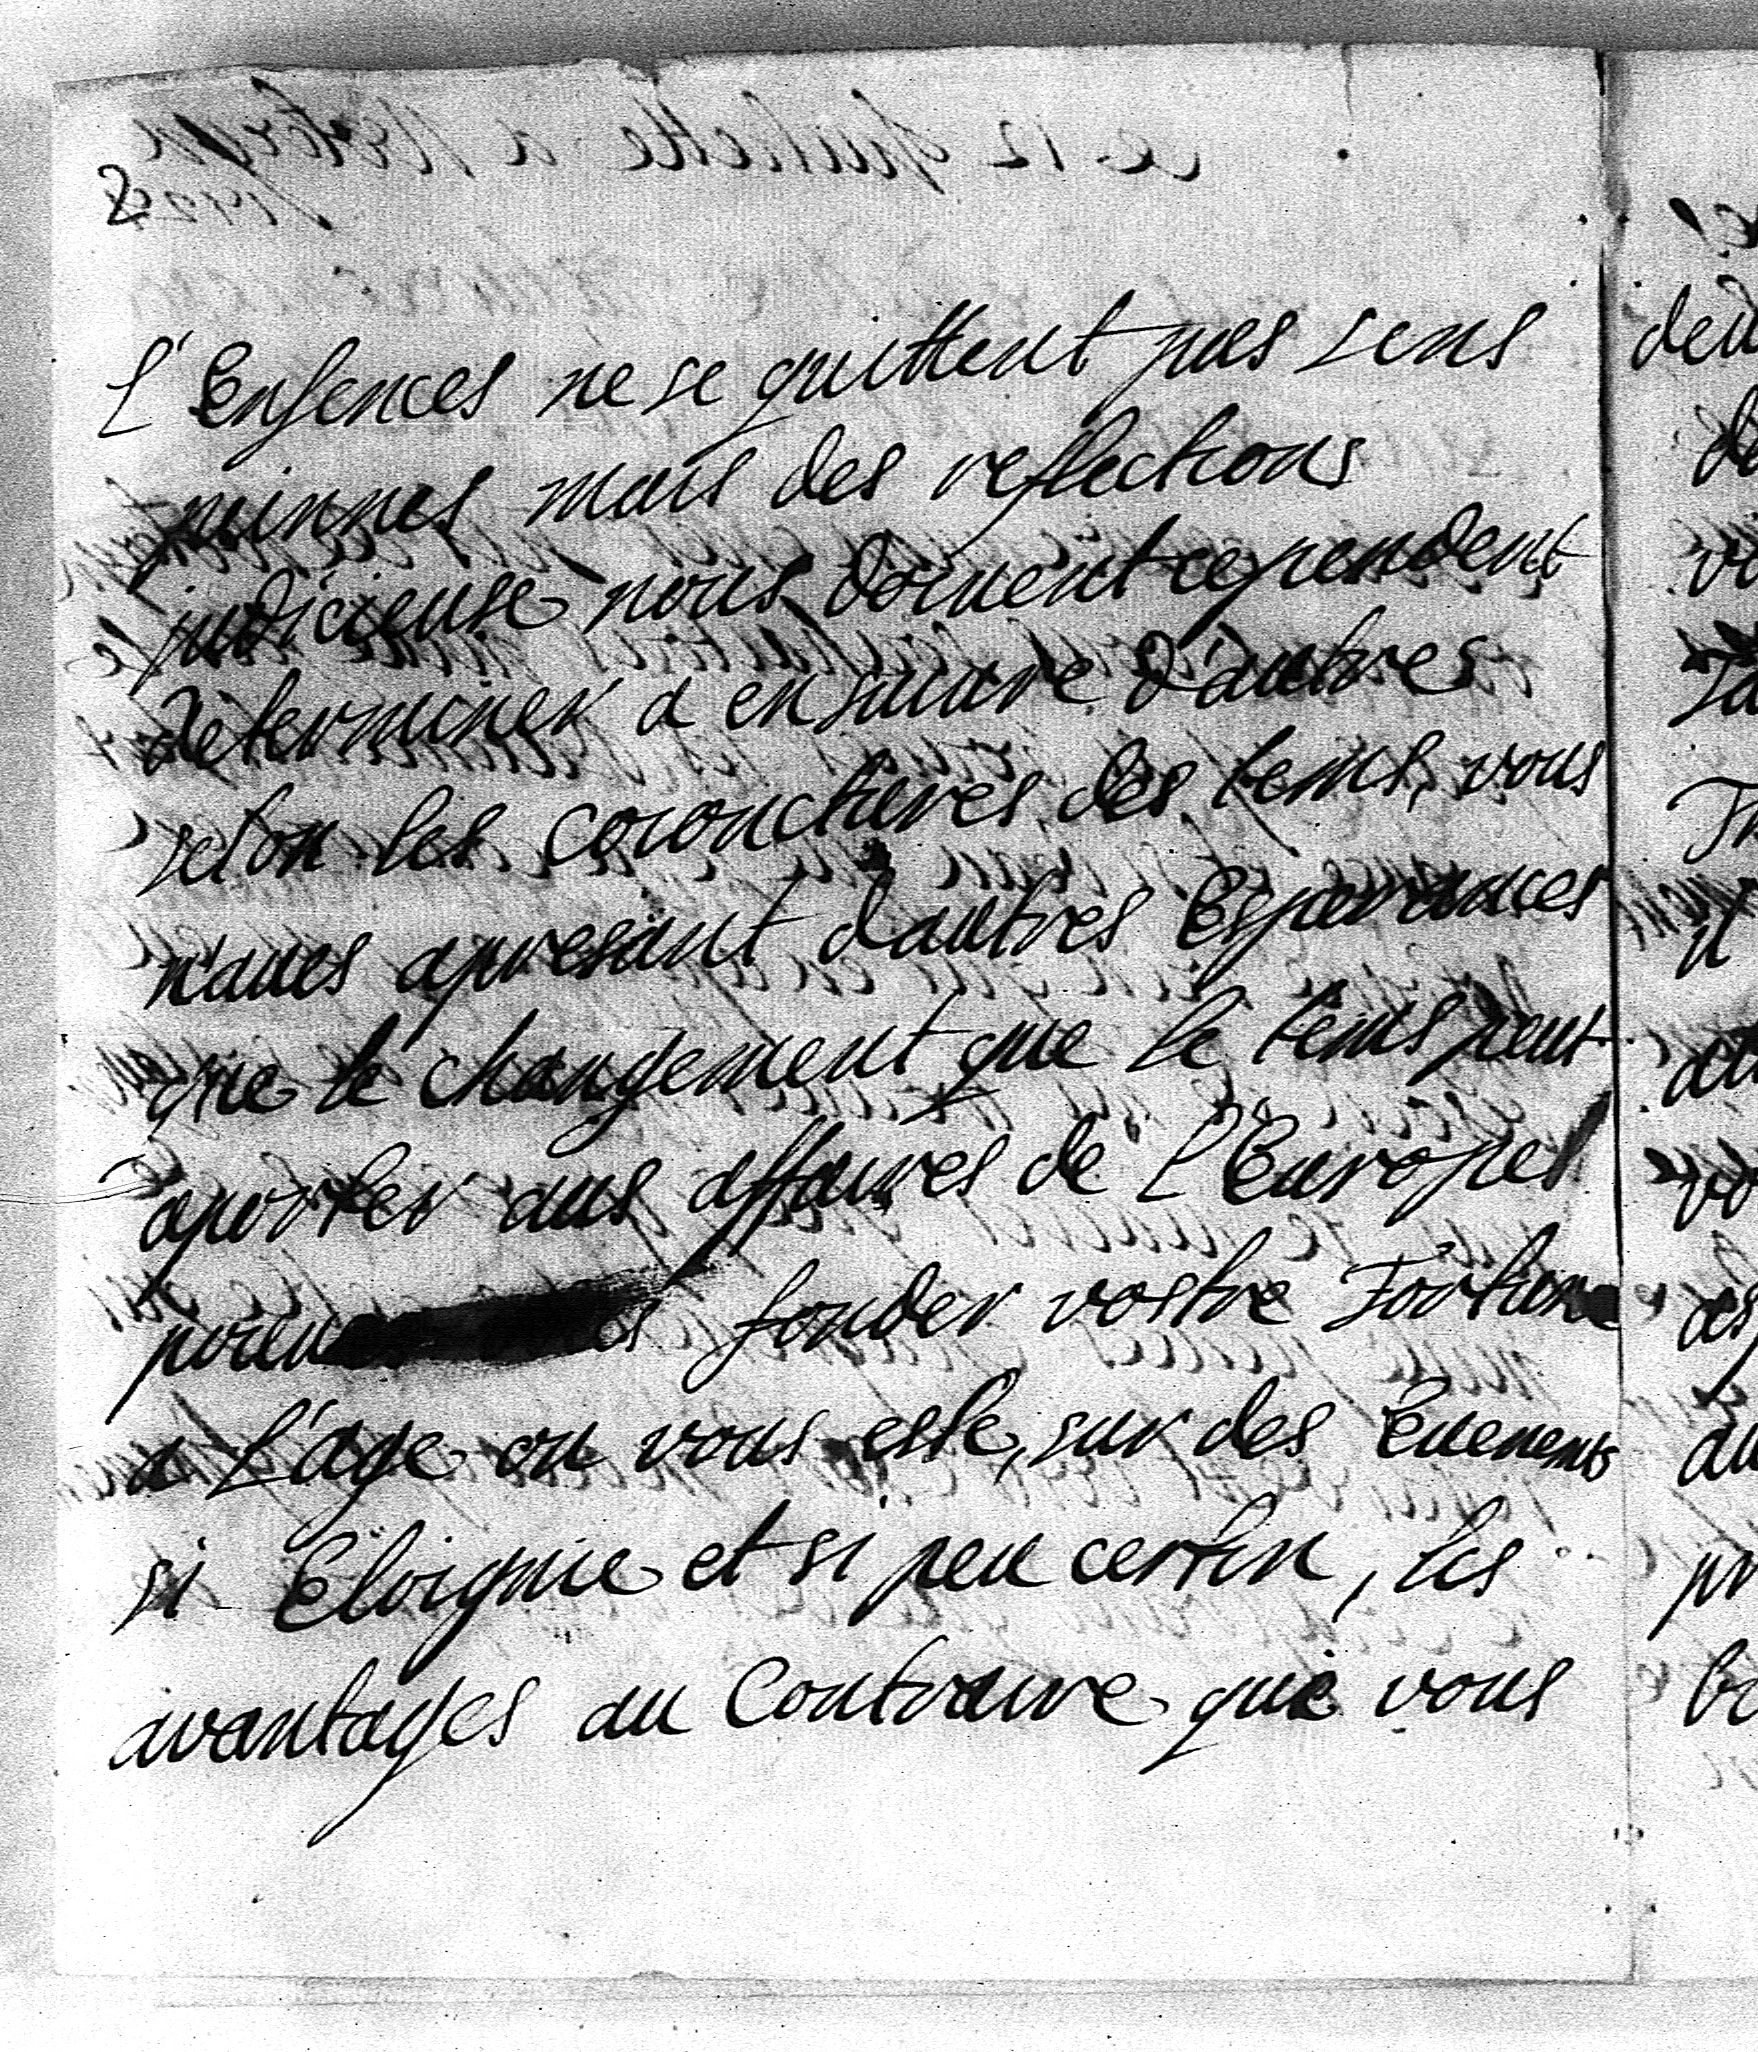 8
L'Enfences ne se quittent pas sens
peinnes mais des reflections
judicieuse nous doivent cependent
determiner a en suivre d'autres
selon les coronctures des tems, vous
n'aves apresant d'autres Esperances
que le changement que le tems peut
aporter aus affaires de L'Europe
fonder vostre Fortune
a L'age ou vous este, sur des Evenems
si Eloignie et si peu certin, les
avantages au Contraire que vous